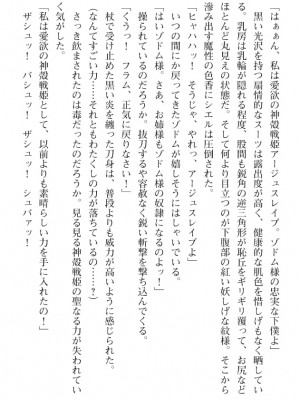 「はぁぁん、私は愛欲の神殻戦姫アージュスレイブ。ゾドム様の忠実な下僕よ」
黒い光沢を持つ扇情的なスーツは露出度が高く、健康的な肌色を惜しげもなく晒してい
る。乳房は乳輪が隠れる程度、股間も鋭角の逆三角形が恥丘をギリギリ覆って、お尻など
ほとんど丸見えの状態だ。そして何より目立つのが下腹部の紅い妖しげな紋様。そこから
滲み出す魔性の色香にシエルは圧倒された。
「ヒャハハッ！　そうじゃ、やれっ、アージュスレイブよ」
いつの間にか戻ってきたゾドムが嬉しそうにはしゃいでいる。
「くすっ、ゾドム様。さあ、お姉もゾドム様の奴隷になるのよ！」
操られているのだろうか。抜刀するや容赦なく鋭い斬撃を撃ち込んでくる。
「くうっ！　フラム、正気に戻りなさい！」
杖で受け止めた黒い炎を纏った刀身は、普段よりも威力が高いように感じられた。
（なんてすごい力……それともわたくしの力が落ちているの……？）
さっき飲まされたのは毒だったのだろうか。見る見る神殻戦姫の聖なる力が失われてい
く気がした。
「私は愛欲の神殻戦姫として、以前よりも素晴らしい力を手に入れたの！」
ザシュッ！　バシュッ！　ザシュッ！　シュバァッ！